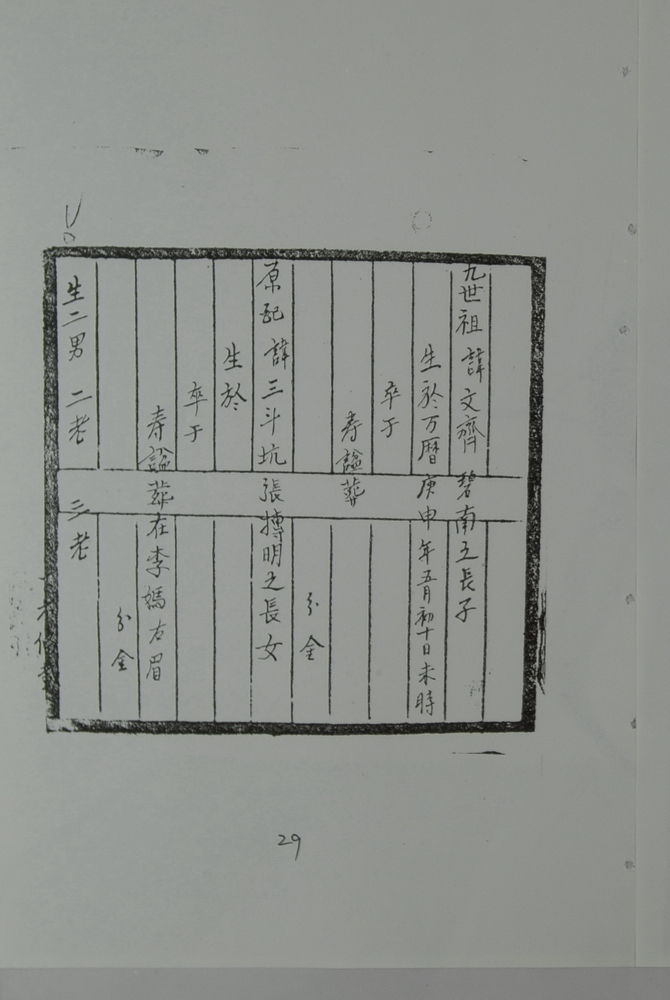 九世祖 諱文齊 碧南之長子
生於万曆庚申年五月初十日未時
卒于
寿諡葬
分金
原配 諱三斗坑張摶明之長女
生於
卒于
寿諡葬在李媽右眉
分金
生二男 二老 三老
29